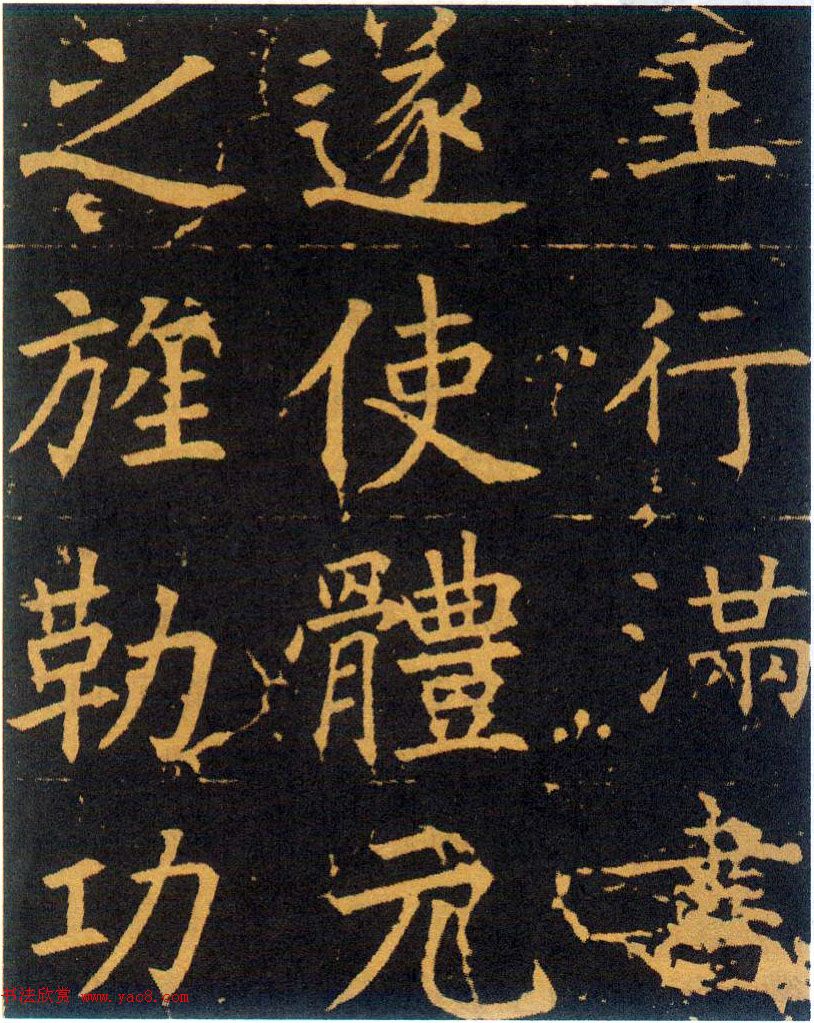 主行滿書
遂使體元
之旌勒功
书法欣赏 www.yac8.com